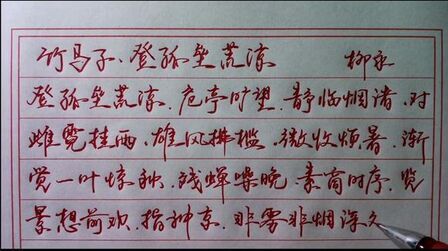 竹马子、登孤垒荒凉 柳永
登孤垒荒凉、危亭旷望、静临烟渚、对
雌霓挂雨、雄风拂槛、微收烦暑、渐
觉一叶惊秋、残蝉噪晚、素商时序、览
景想前欢、指神京、非雾非烟深